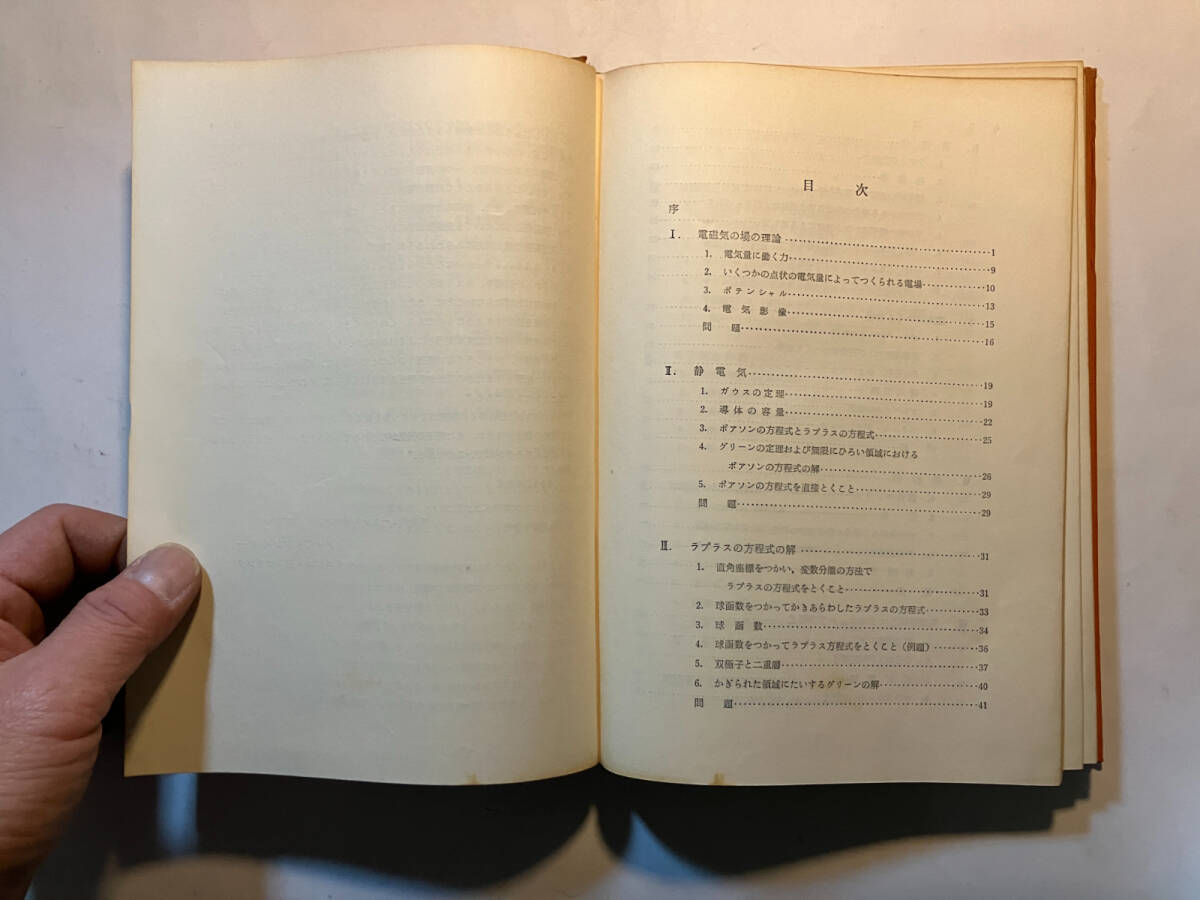 目 次
序
Ⅰ. 電磁気の場の理論……1
1. 電気量に働く力……9
2. いくつかの点状の電気量によってつくられる電場……10
3. ポテンシャル……13
4. 電気影像……15
問 題……16
Ⅱ. 静電気……19
1. ガウスの定理……19
2. 導体の容量……22
3. ポアソンの方程式とラプラスの方程式……25
4. グリーンの定理および無限にひろい領域における
ポアソンの方程式の解……26
5. ポアソンの方程式を直接とくこと……29
問 題……29
Ⅲ. ラプラスの方程式の解……31
1. 直角座標をつかい,変数分離の方法で
ラプラスの方程式をとくこと……31
2. 球函数をつかってかきあらわしたラプラスの方程式……33
3. 球函数……34
4. 球函数をつかってラプラス方程式をとくこと(例題)……36
5. 双極子と二重層……37
6. かぎられた領域にたいするグリーンの解……40
問 題……41